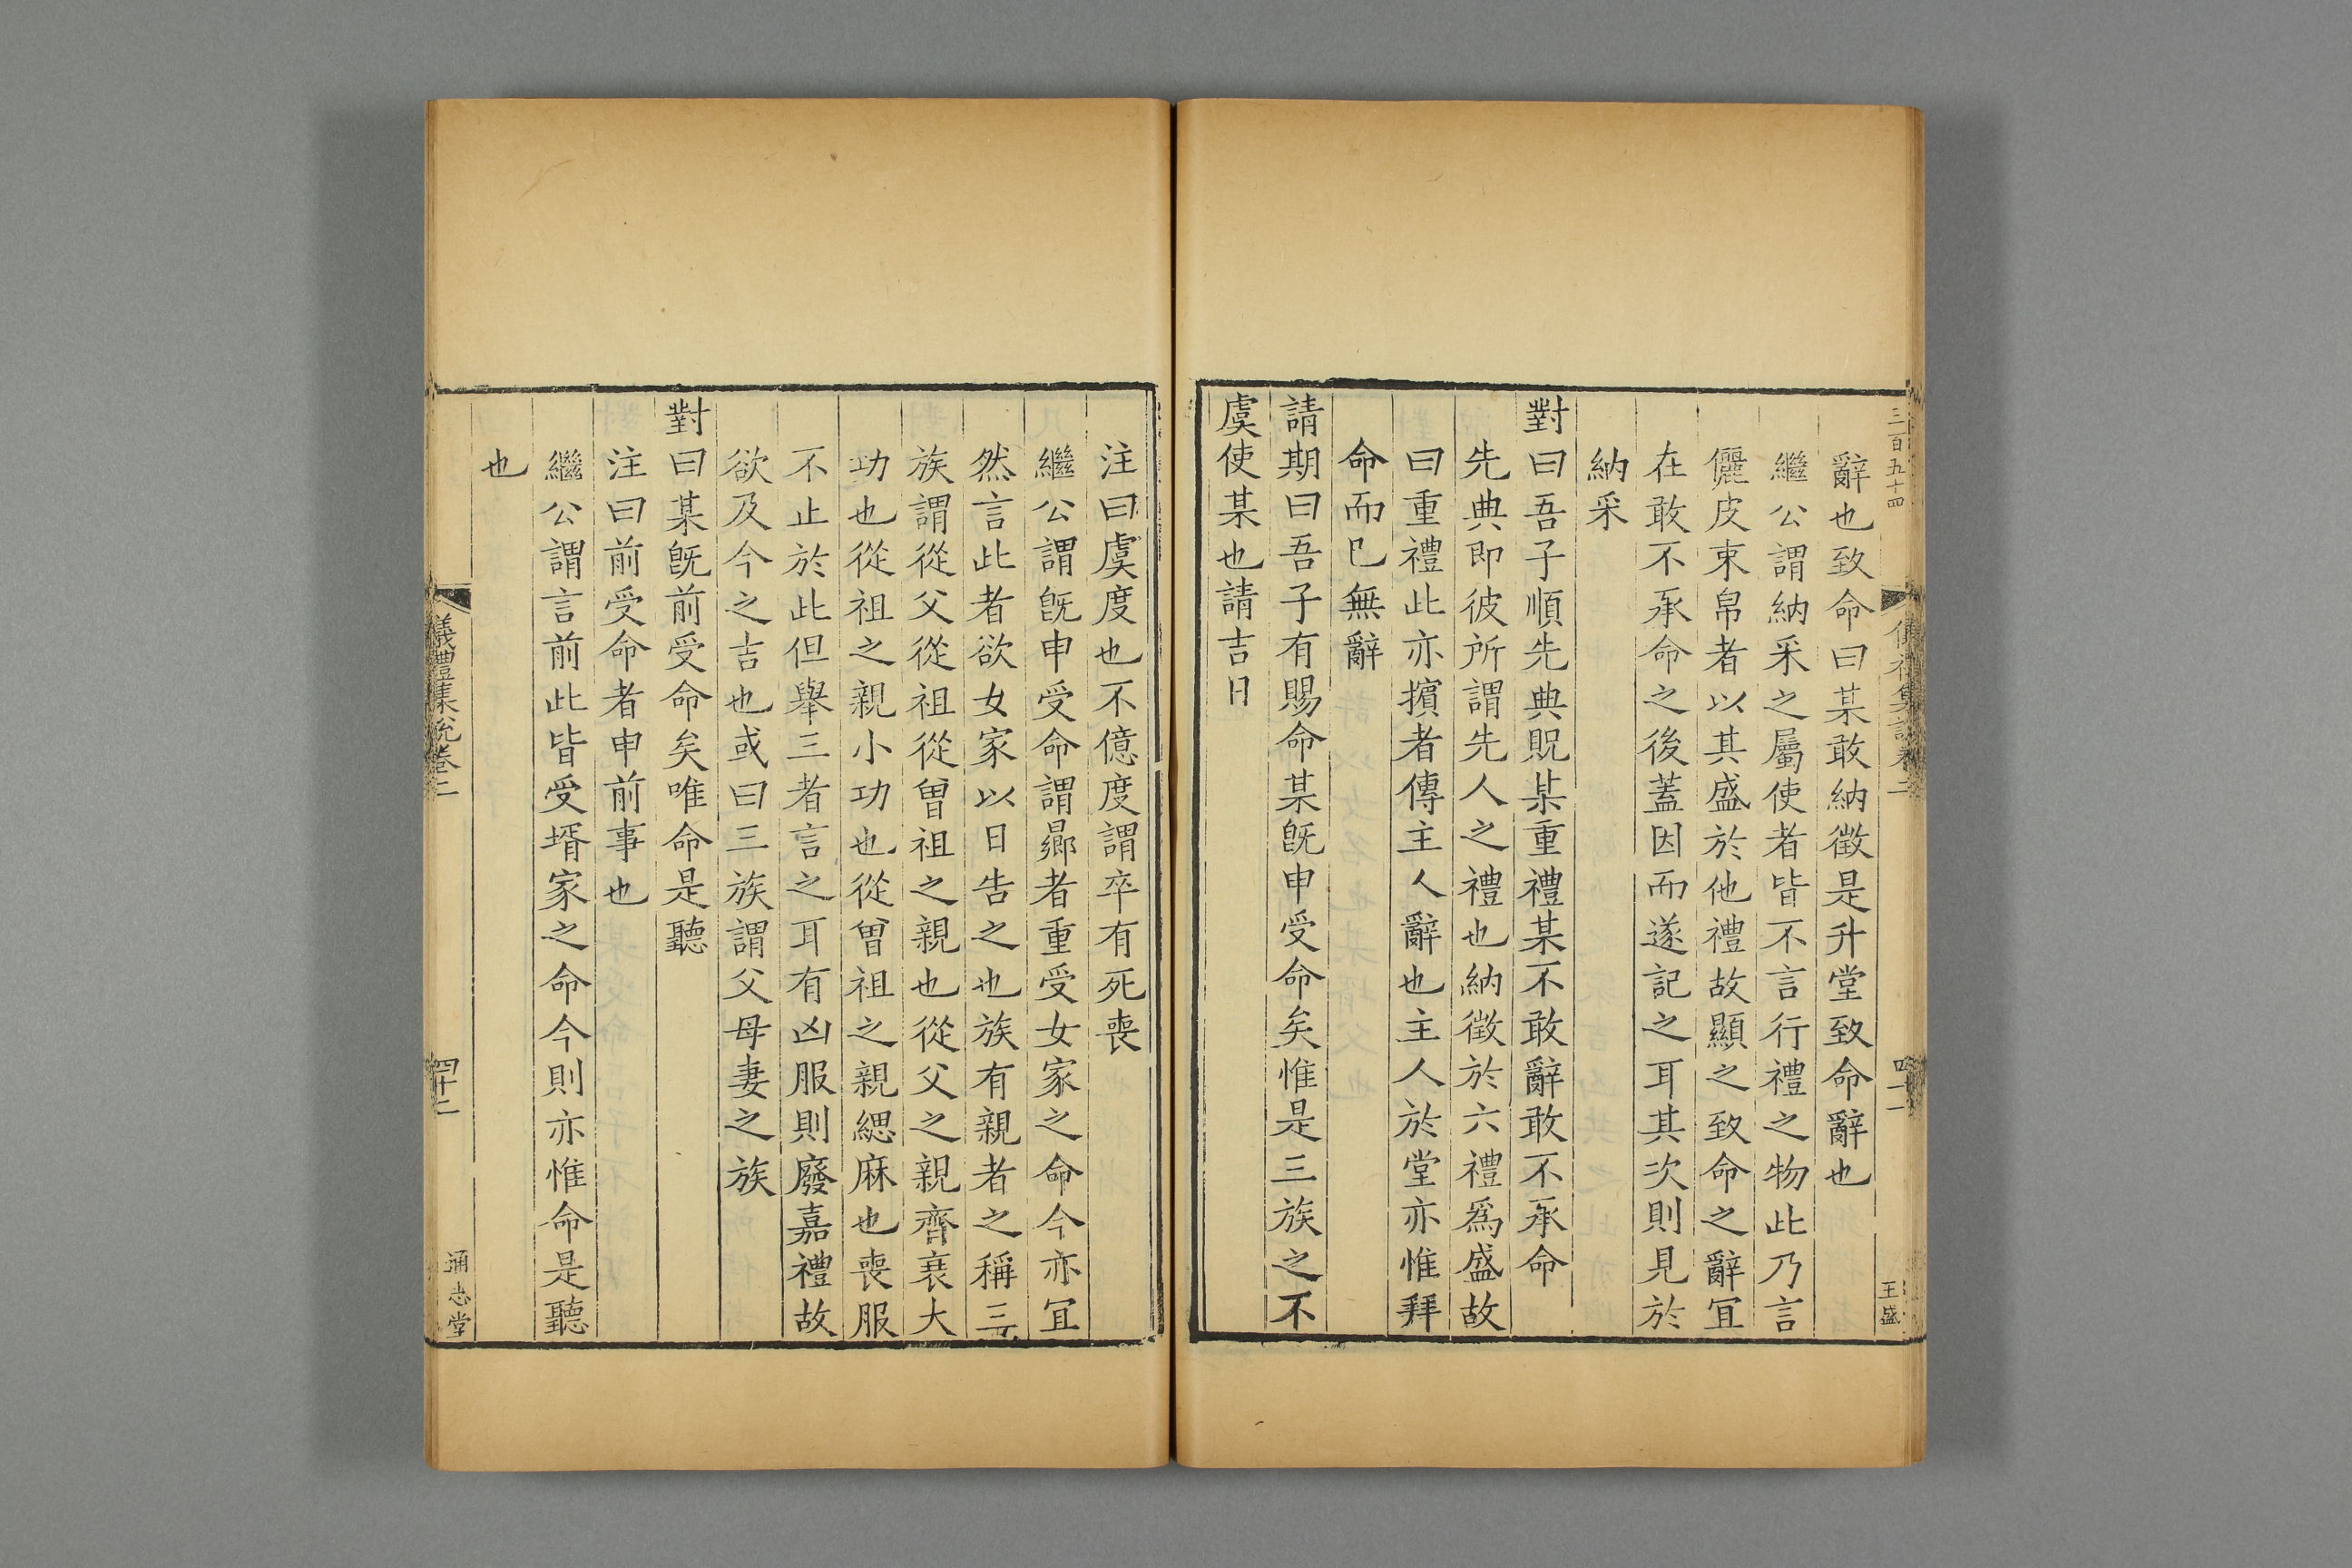 三百五十四
儀禮集說卷二
四十一
王盛
辭也致命曰某敢納徵是升堂致命辭也
繼公謂納采之屬使者皆不言行禮之物此乃言
儷皮束帛者以其盛於他禮故顯之致命之辭宜
在敢不承命之後蓋因而遂記之耳其次則見於
納采
對曰吾子順先典貺某重禮某不敢辭敢不承命
先典即彼所謂先人之禮也納徵於六禮爲盛故
曰重禮此亦擯者傳主人辭也主人於堂亦惟拜
命而已無辭
請期曰吾子有賜命某旣申受命矣惟是三族之不
虞使某也請吉日
注曰虞度也不億度謂卒有死喪
繼公謂旣申受命謂曏者重受女家之命今亦宜
然言此者欲女家以日告之也族有親者之稱三
族謂從父從祖從曾祖之親也從父之親齊衰大
功也從祖之親小功也從曾祖之親緦麻也喪服
不止於此但舉三者言之耳有凶服則廢嘉禮故
欲及今之吉也或曰三族謂父母妻之族
對曰某旣前受命矣唯命是聽
注曰前受命者申前事也
繼公謂言前此皆受壻家之命今則亦惟命是聽
也
儀禮集說卷二
四十二
通志堂